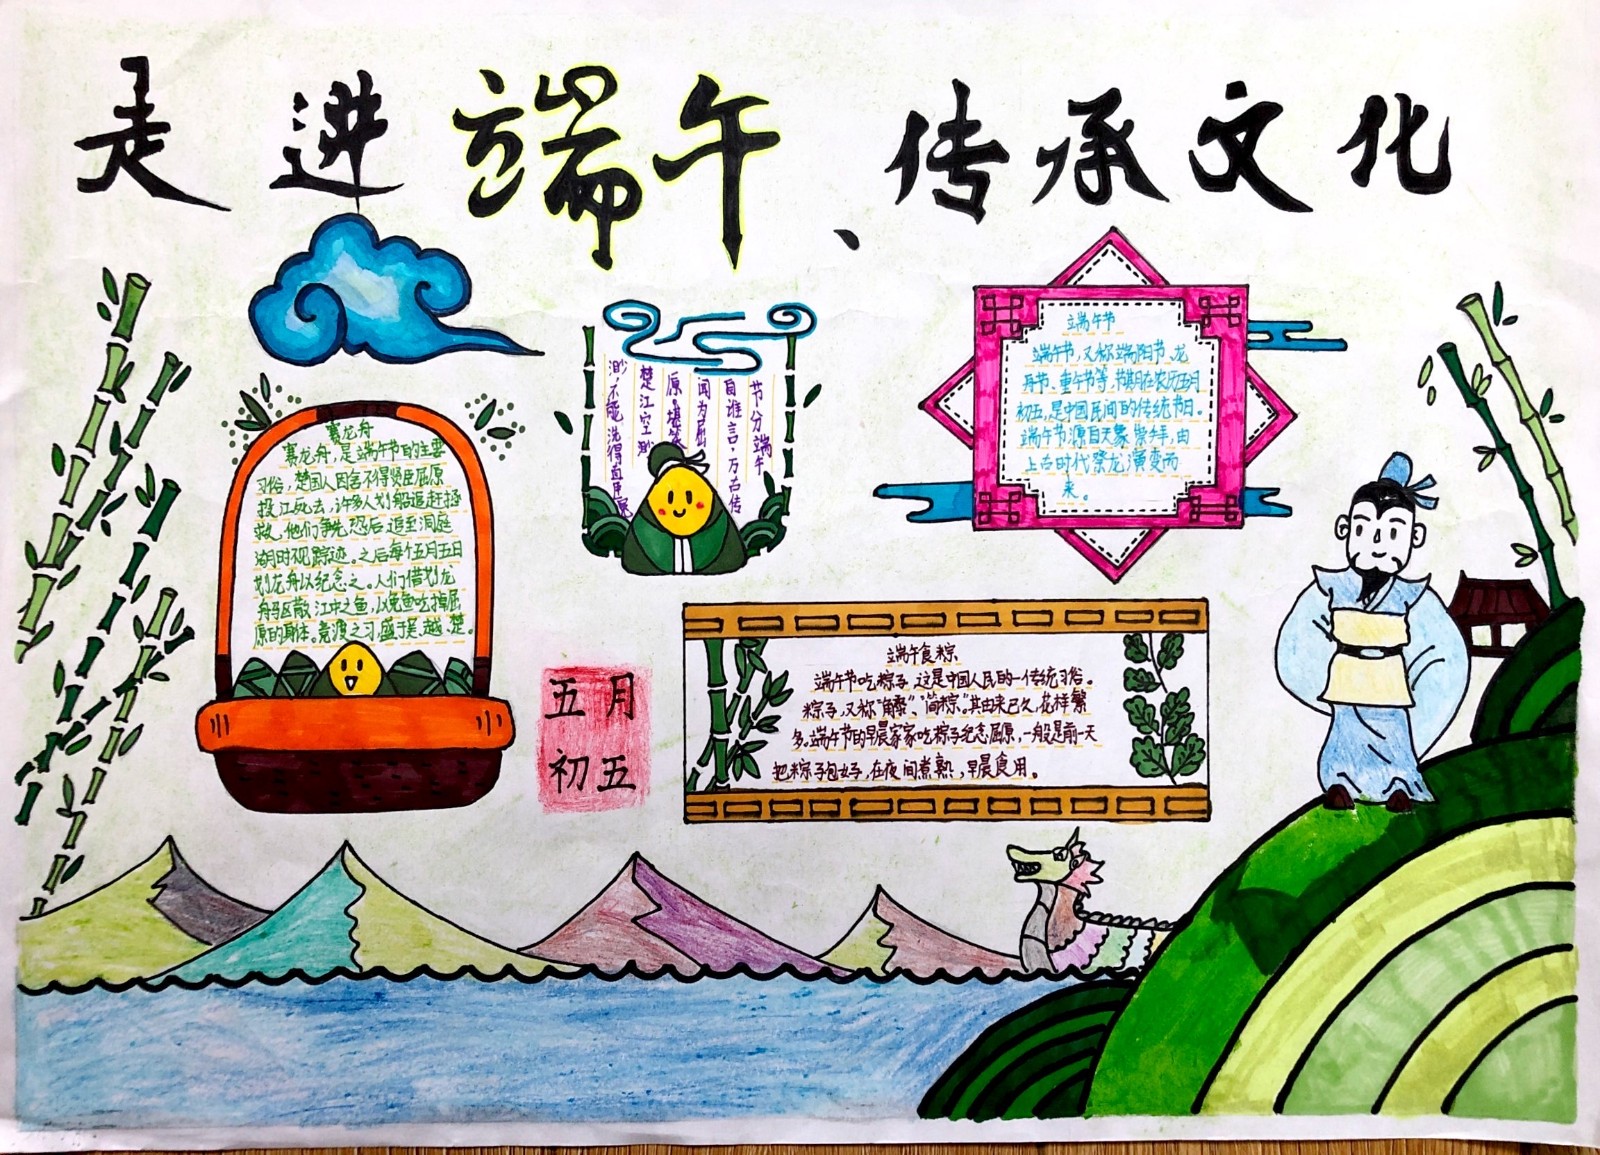 走进端午、传承文化
赛龙舟
赛龙舟,是端午节的主要
习俗,楚国人因舍不得贤臣屈原
投江死去,许多人划船追赶拯
救,他们争先恐后,追至洞庭
湖时不见踪迹。之后每年五月五日
划龙舟以纪念之。人们借划龙
舟驱散江中之鱼,以免鱼吃掉屈
原的身体。竞渡之习,盛于吴、越、楚。
节分端午
自谁言,万古传
闻为屈
原。堪笑
楚江空渺
渺,不能洗得直臣冤
端午节
端午节,又称端阳节、龙
舟节、重午节等,节期在农历五月
初五,是中国民间的传统节日。
端午节源自天象崇拜,由
上古时代祭龙演变而
来。
五月
初五
端午食粽
端午节吃粽子,这是中国人民的一传统习俗。
粽子,又称“角黍”、“筒粽”。其由来已久,花样繁
多。端午节的早晨家家吃粽子纪念屈原,一般是前一天
把粽子包好,在夜间煮熟,早晨食用。